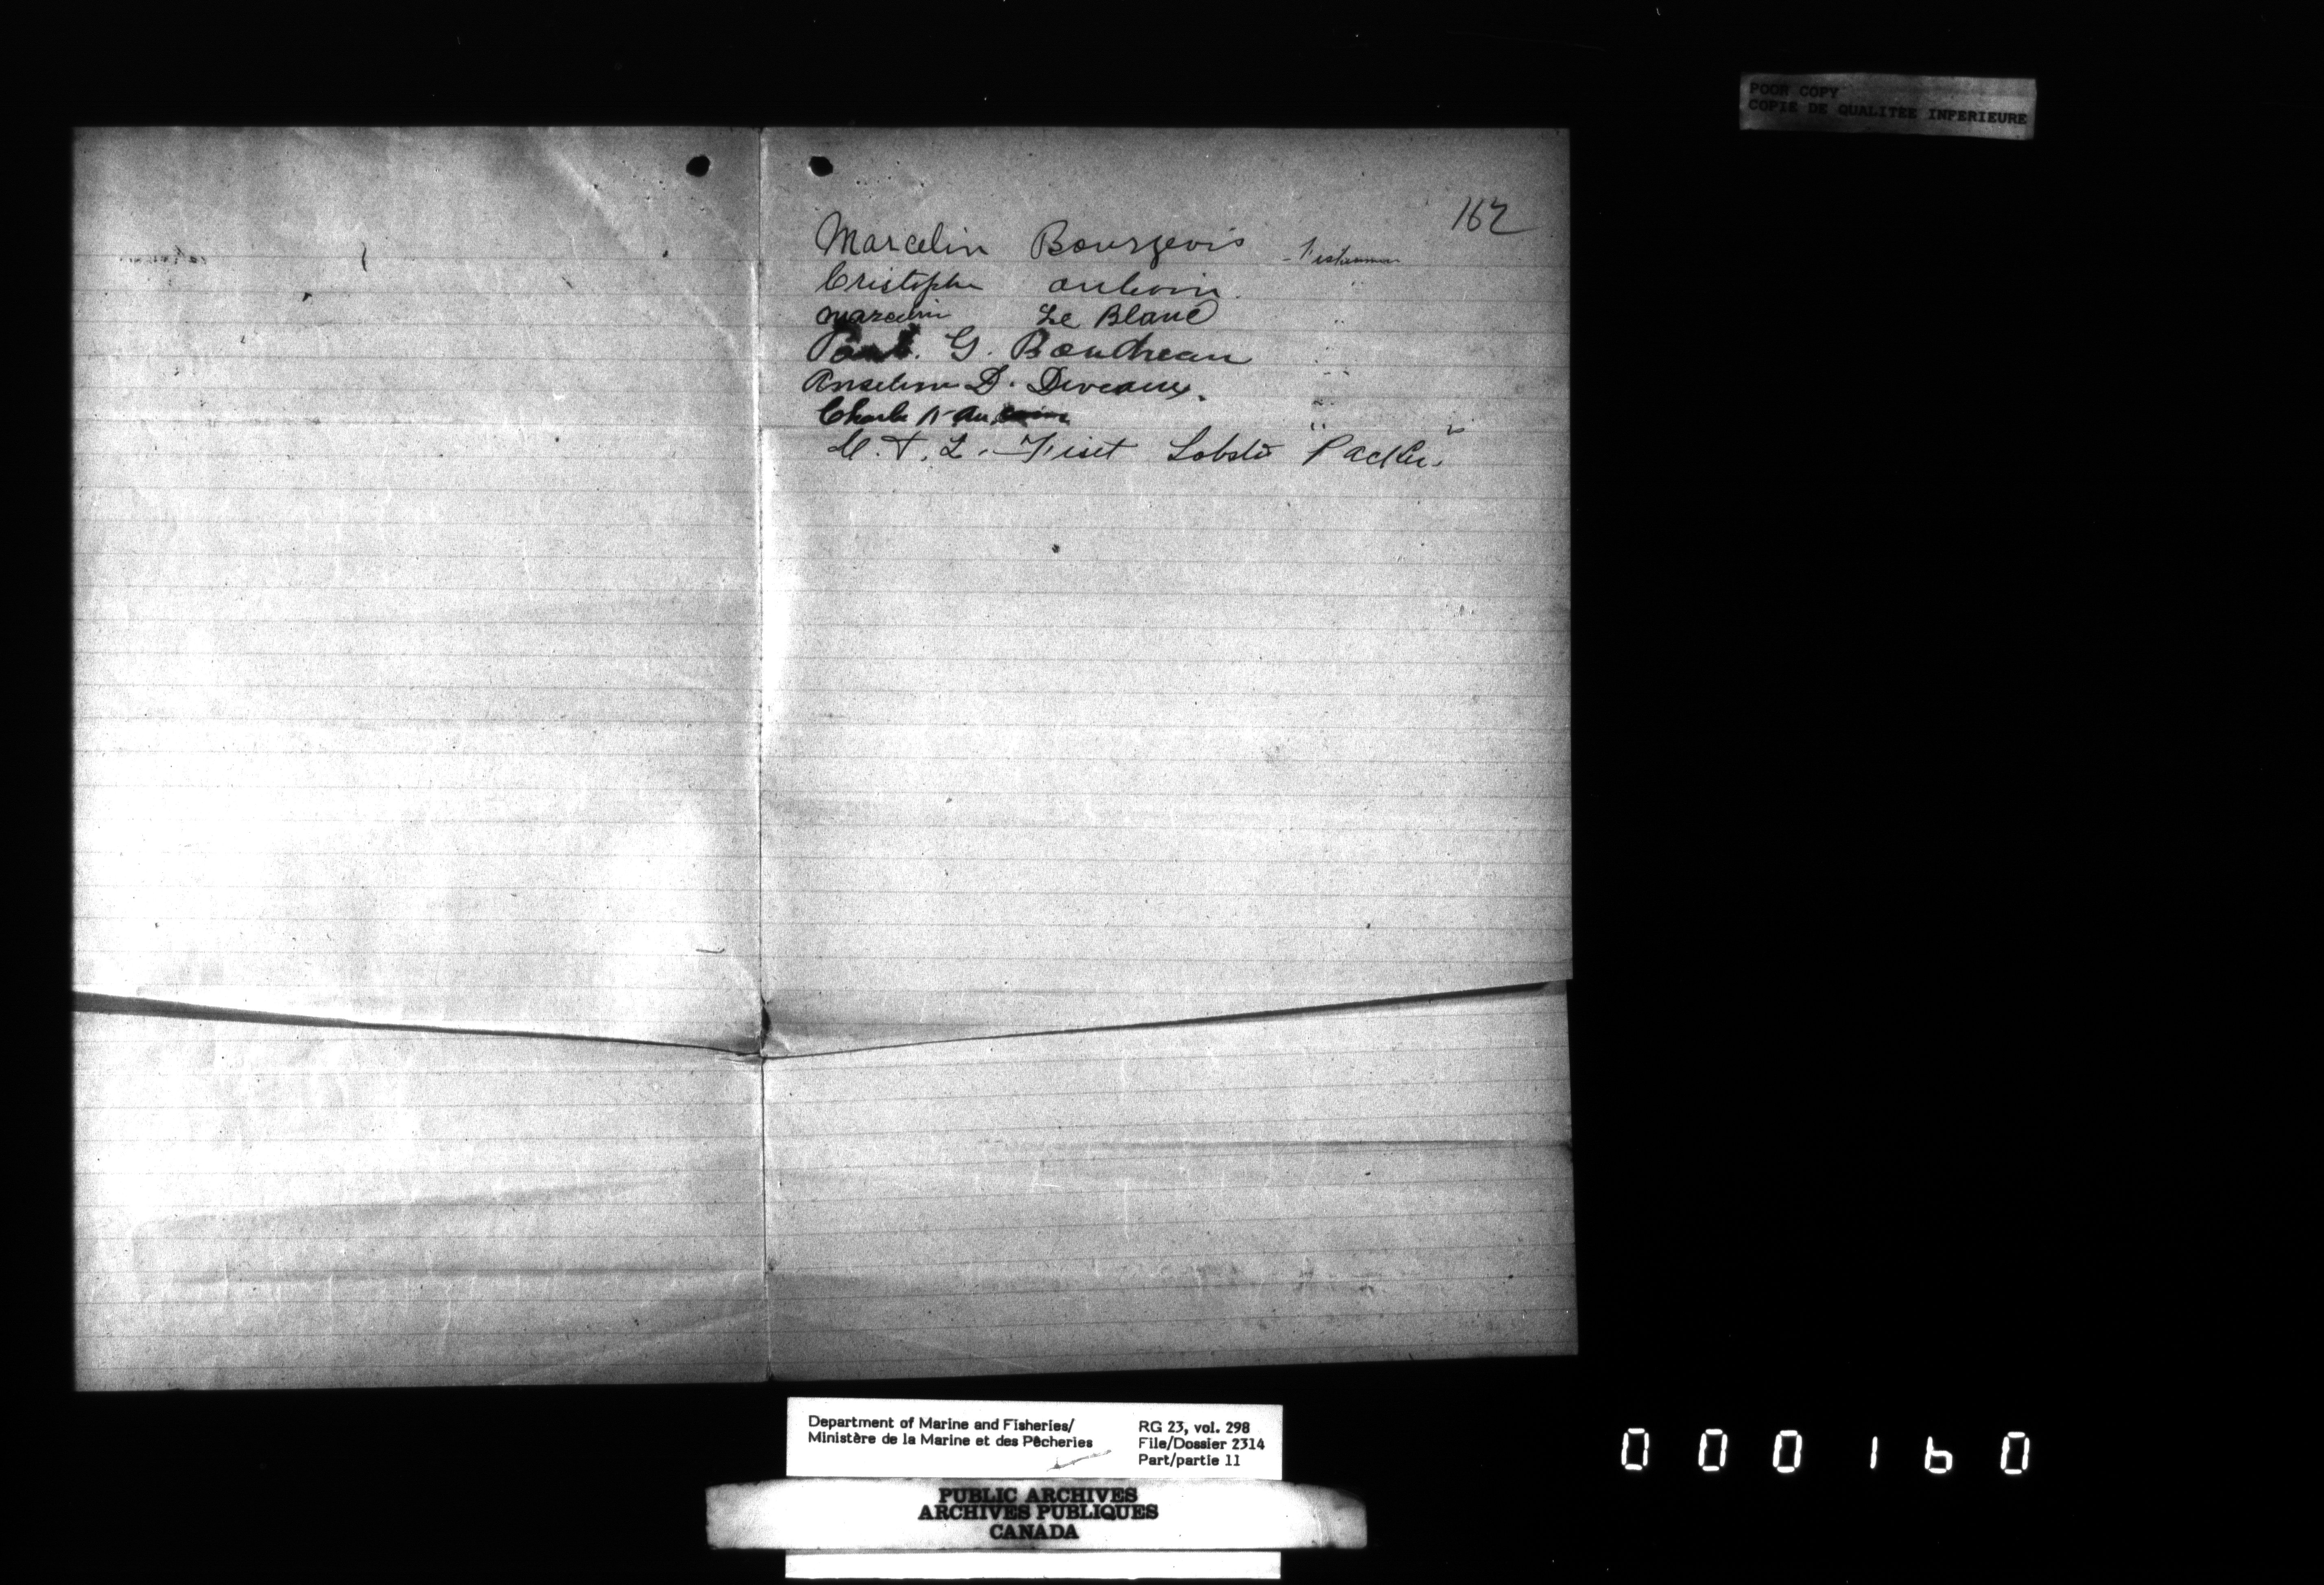 POOR COPY
COPIE DE QUALITEE INFERIEURE
162
Marcelin Bourgeois - Fisherman
Cristophe aucoin "
marcelin Le Blanc "
Paul. G. Boudreau "
Anselme D. Deveaux. "
Charle A Aucoin "
L. Fiset Lobster Packer
Department of Marine and Fisheries/
Ministère de la Marine et des Pêcheries
RG 23, vol. 298
File/Dossier 2314
Part/partie 11
PUBLIC ARCHIVES
ARCHIVES PUBLIQUES
CANADA
000160